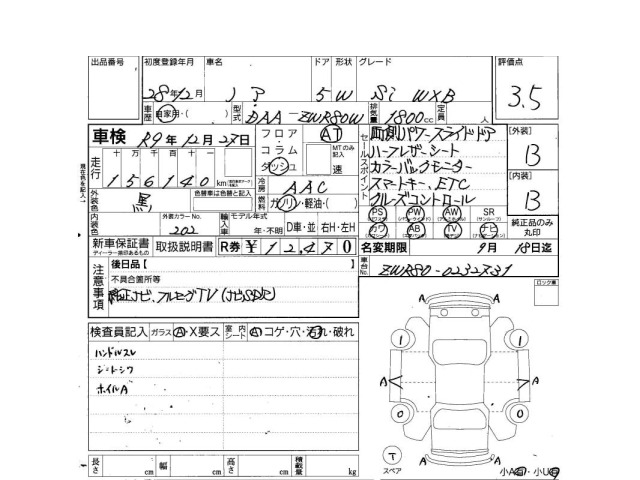 出品番号 初度登録年月 車名 ドア 形状 グレード 評価点
28年12月 ノア 5 W Si WXB 3.5
車歴 自家用・( ) 型式 DAA-ZWR80W 排気量 1800cc 定員 人
車検 R9年12月27日 フロア AT
コラム MTのみ記入
ダッシュ 速
セールスポイント
両側パワースライドドア
ハーフレザーシート
カラーバックモニター
スマートキー、ETC
クルーズコントロール
[外装] B
[内装] B
現在色を記入→
走行 十 万 千 百 十
156140 km
冷房 AAC
外装色 黒 色替車は色替と記入
燃料 ガソリン・軽油・( )
PS PW AW SR
カワ AB TV ナビ
純正品のみ丸印
内装色 外装カラーNo. 202 輸入車 モデル年式 年・不明 D車・並 右H・左H
新車保証書 ディーラー印のあるもの 取扱説明書 R券 ¥ 12470 名変期限 9月18日迄
車台No. ZWR80-0232731
注意事項
後日品[ ]
不具合箇所等
純正ナビ、フルセグTV(ナビSDナシ)
ロック車
検査員記入 ガラス A・X要ス 室内シート A コゲ・穴・汚れ・破れ
ハンドルスレ
シートシワ
ホイルA
A A
1 1
A A
0 0
T スペア A A
長さ cm 幅 cm 高さ cm 積載量 kg
小A・小U